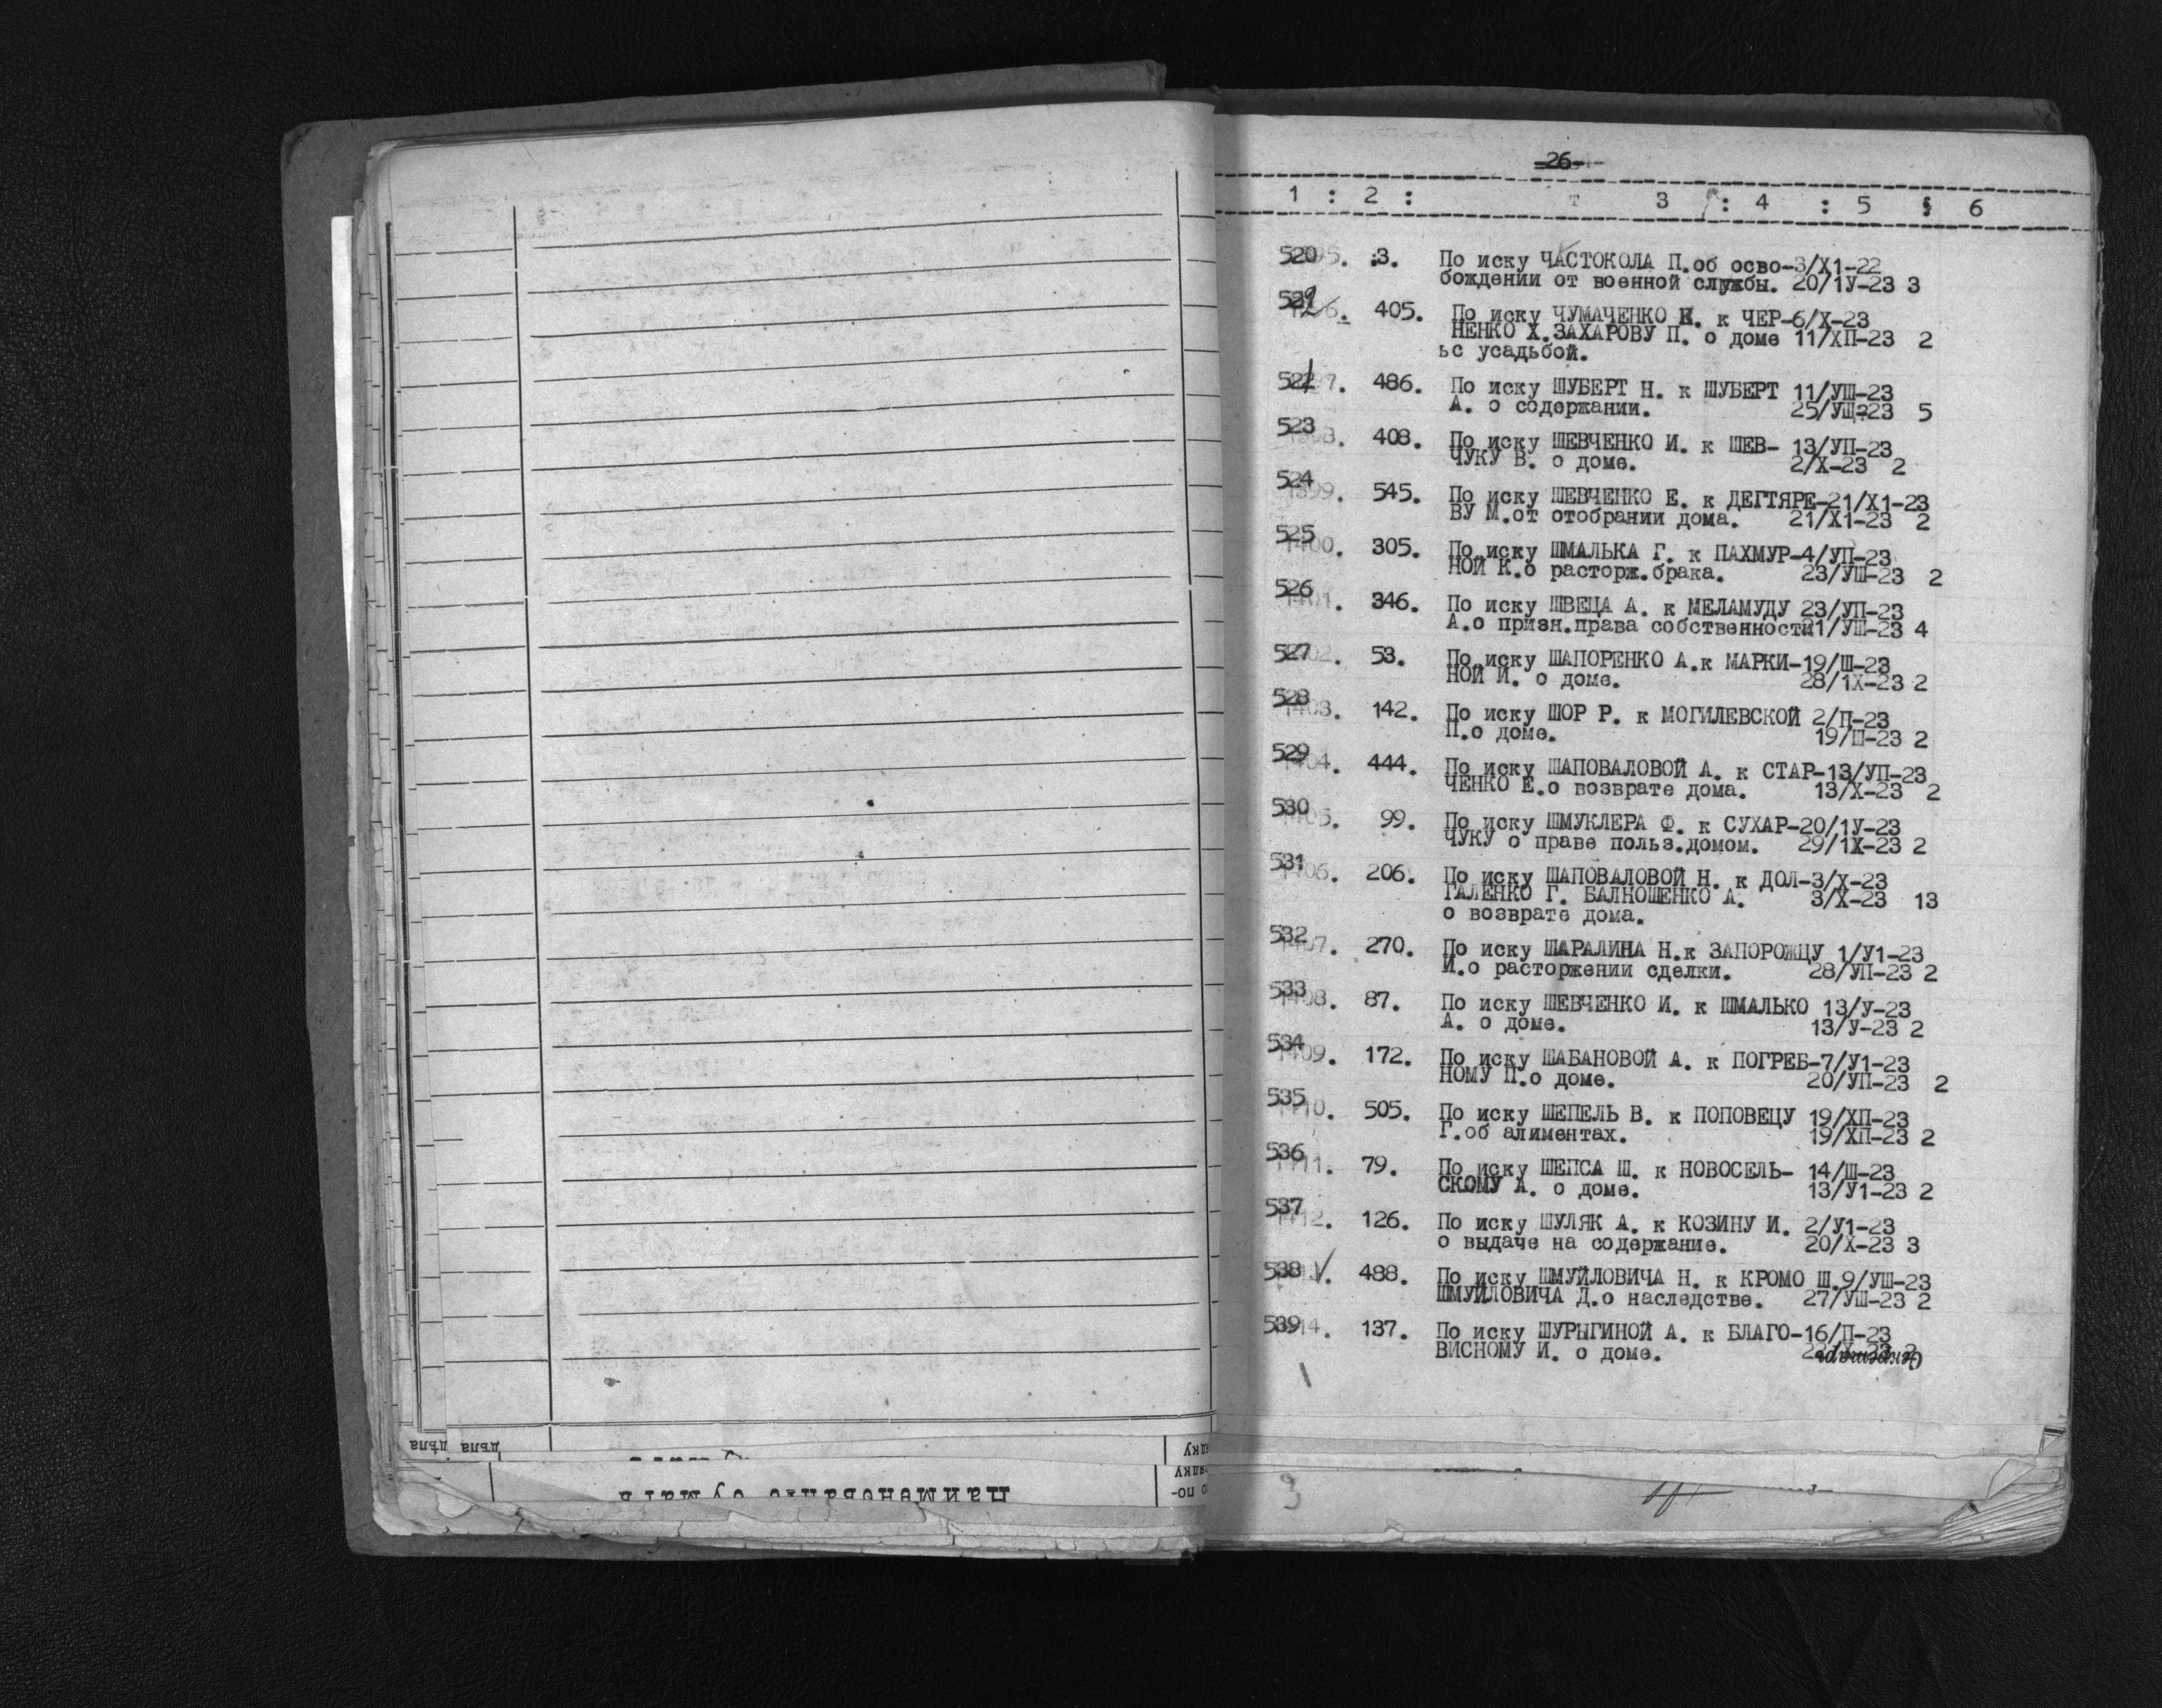 -26-
1 : 2 : 3 : 4 : 5 : 6
520. 3. По иску ЧАСТОКОЛА П.об осво-3/Х1-22
бождении от военной службы. 20/1У-23 3
521. 405. По иску ЧУМАЧЕНКО И. к ЧЕР-6/Х-23
НЕНКО Х.ЗАХАРОВУ П. о доме 11/ХП-23 2
ьс усадьбой.
522. 486. По иску ШУБЕРТ Н. к ШУБЕРТ 11/УШ-23
А. о содержании. 25/УШ-23 5
523. 408. По иску ШЕВЧЕНКО И. к ШЕВ- 13/УП-23
ЧУКУ В. о доме. 2/Х-23 2
524. 545. По иску ШЕВЧЕНКО Е. к ДЕГТЯРЕ-21/Х1-23
ВУ М.от отобрании дома. 21/Х1-23 2
525. 305. По иску ШМАЛЬКА Г. к ПАХМУР-4/УП-23
НОЙ К.о расторж.брака. 23/УШ-23 2
526. 346. По иску ШВЕЦА А. к МЕЛАМУДУ 23/УП-23
А.о призн.права собственности21/УШ-23 4
527. 53. По иску ШАПОРЕНКО А.к МАРКИ-19/Ш-23
НОЙ И. о доме. 28/1Х-23 2
528. 142. По иску ШОР Р. к МОГИЛЕВСКОЙ 2/П-23
П.о доме. 19/Ш-23 2
529. 444. По иску ШАПОВАЛОВОЙ А. к СТАР-13/УП-23
ЧЕНКО Е.о возврате дома. 13/Х-23 2
530. 99. По иску ШМУКЛЕРА Ф. к СУХАР-20/1У-23
ЧУКУ о праве польз.домом. 29/1Х-23 2
531. 206. По иску ШАПОВАЛОВОЙ Н. к ДОЛ-3/Х-23
ГАЛЕНКО Г. БАЛНОШЕНКО А. 3/Х-23 13
о возврате дома.
532. 270. По иску ШАРАЛИНА Н.к ЗАПОРОЖЦУ 1/У1-23
И.о расторжении сделки. 28/УП-23 2
533. 87. По иску ШЕВЧЕНКО И. к ШМАЛЬКО 13/У-23
А. о доме. 13/У-23 2
534. 172. По иску ШАБАНОВОЙ А. к ПОГРЕБ-7/У1-23
НОМУ П.о доме. 20/УП-23 2
535. 505. По иску ШЕПЕЛЬ В. к ПОПОВЕЦУ 19/ХП-23
Г.об алиментах. 19/ХП-23 2
536. 79. По иску ШЕПСА Ш. к НОВОСЕЛЬ- 14/Ш-23
СКОМУ А. о доме. 13/У1-23 2
537. 126. По иску ШУЛЯК А. к КОЗИНУ И. 2/У1-23
о выдаче на содержание. 20/Х-23 3
538. 488. По иску ШМУЙЛОВИЧА Н. к КРОМО Ш.9/УШ-23
ШМУЙЛОВИЧА Д.о наследстве. 27/УШ-23 2
539. 137. По иску ШУРЫГИНОЙ А. к БЛАГО-16/П-23
ВИСНОМУ И. о доме.
дѣла дѣла
Наименованіе бумагъ
3